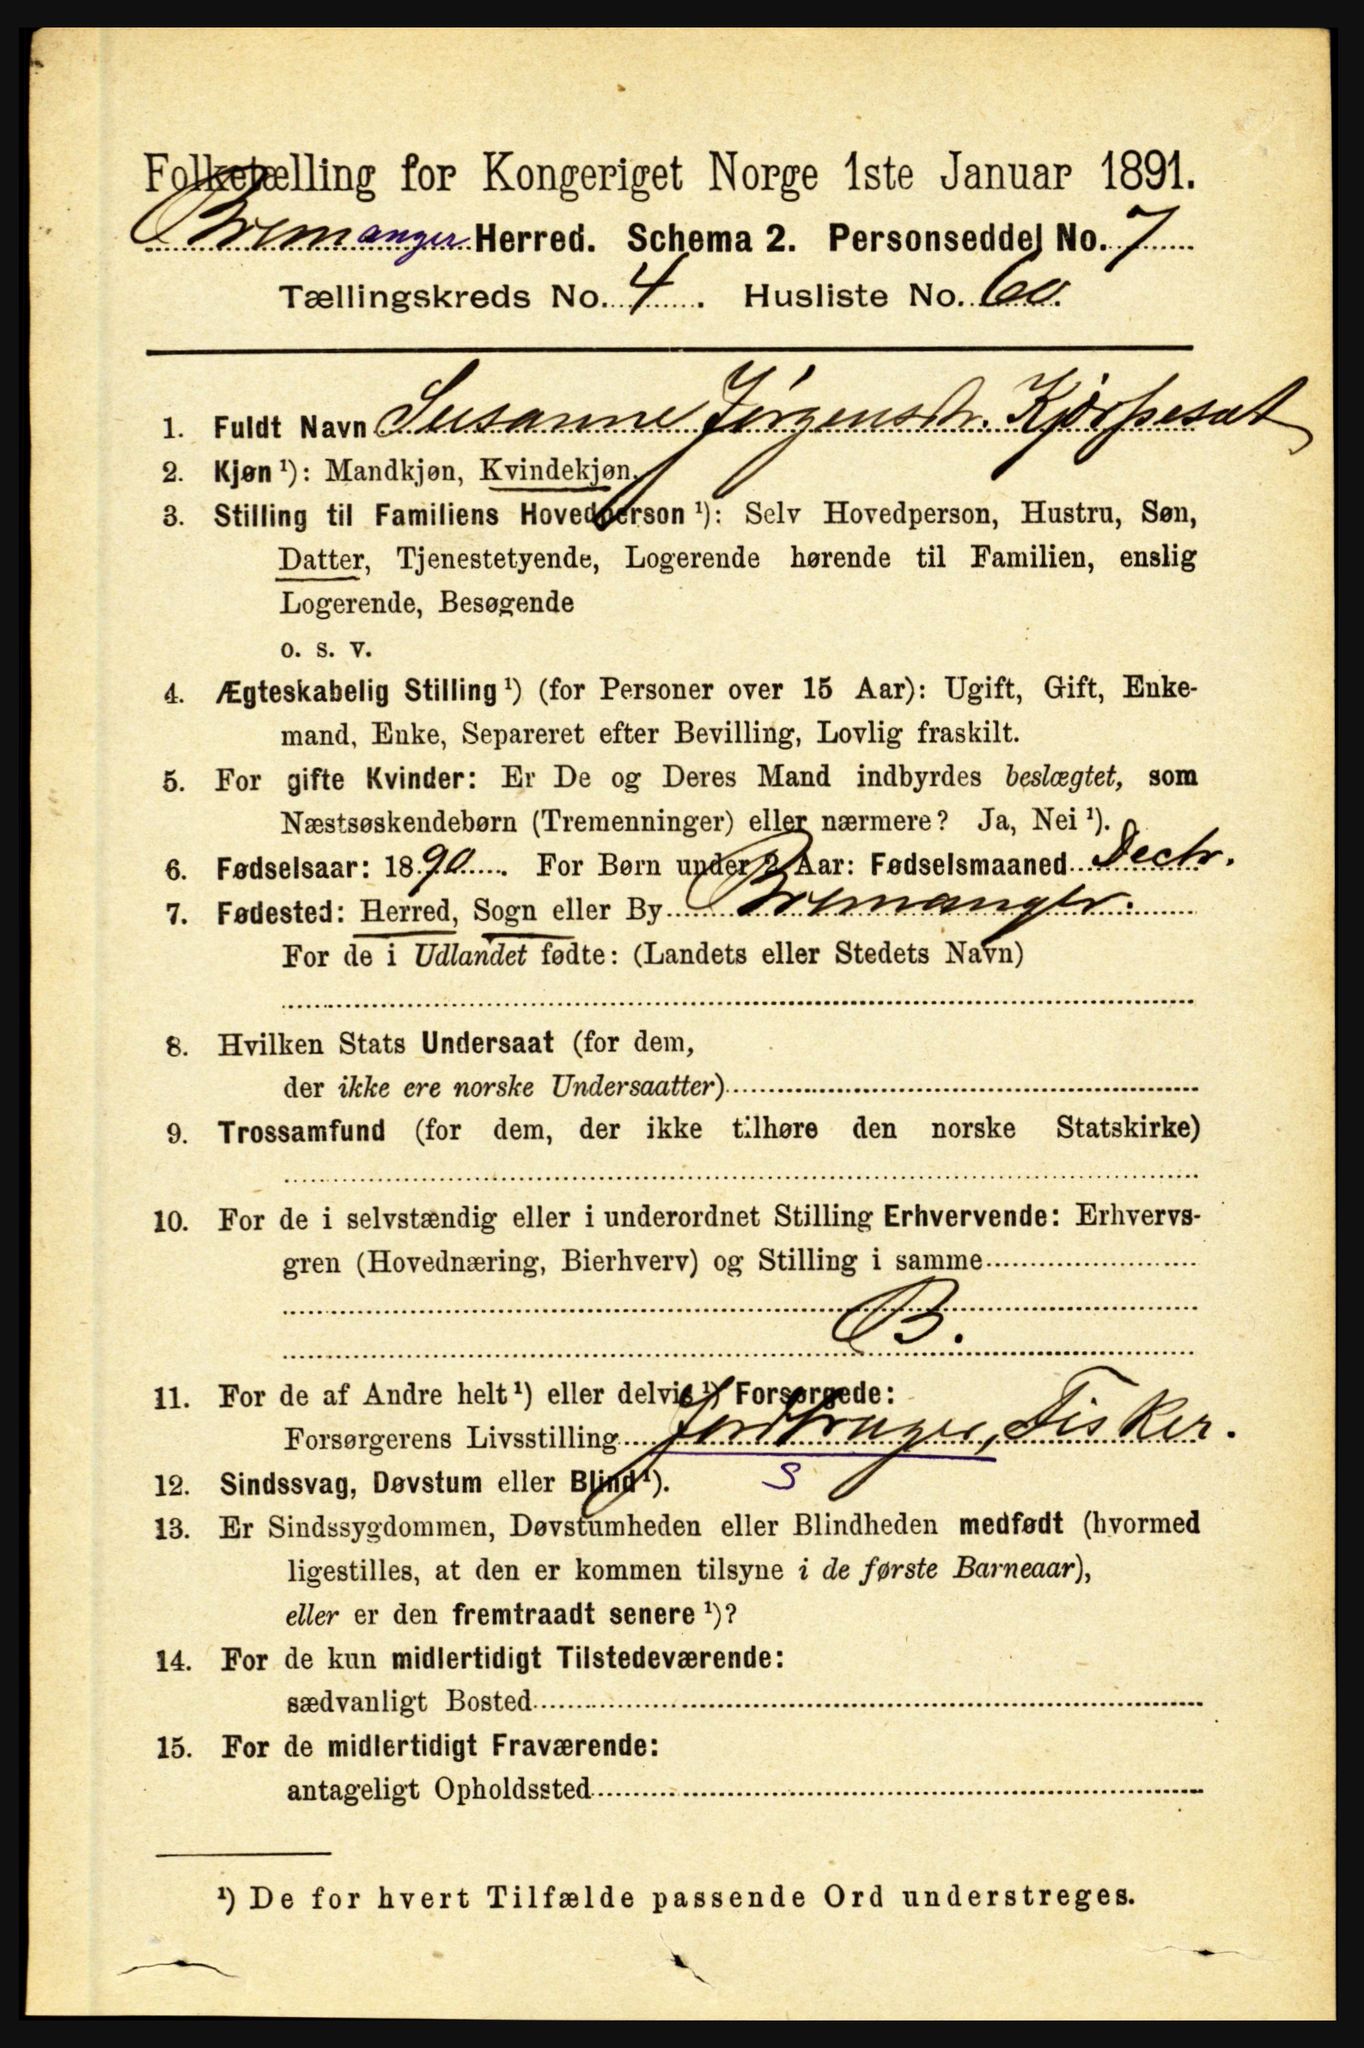 Folketælling for Kongeriget Norge 1ste Januar 1891.
Bremanger Herred. Schema 2. Personseddel No. 7
Tællingskreds No. 4. Husliste No. 60.
1. Fuldt Navn Susanne Jørgensdr. Kjørpesæt
2. Kjøn ¹): Mandkjøn, Kvindekjøn.
3. Stilling til Familiens Hovedperson ¹): Selv Hovedperson, Hustru, Søn,
Datter, Tjenestetyende, Logerende hørende til Familien, enslig
Logerende, Besøgende
o. s. v.
4. Ægteskabelig Stilling ¹) (for Personer over 15 Aar): Ugift, Gift, Enke-
mand, Enke, Separeret efter Bevilling, Lovlig fraskilt.
5. For gifte Kvinder: Er De og Deres Mand indbyrdes beslægtet, som
Næstsøskendebørn (Tremenninger) eller nærmere? Ja, Nei ¹).
6. Fødselsaar: 1890. For Børn under 2 Aar: Fødselsmaaned Decbr.
7. Fødested: Herred, Sogn eller By Bremanger.
For de i Udlandet fødte: (Landets eller Stedets Navn)
8. Hvilken Stats Undersaat (for dem,
der ikke ere norske Undersaatter)
9. Trossamfund (for dem, der ikke tilhøre den norske Statskirke)
10. For de i selvstændig eller i underordnet Stilling Erhvervende: Erhvervs-
gren (Hovednæring, Bierhverv) og Stilling i samme
B.
11. For de af Andre helt ¹) eller delvis ¹) Forsørgede:
Forsørgerens Livsstilling Jordbruger, Fisker.
S
12. Sindssvag, Døvstum eller Blind ¹).
13. Er Sindssygdommen, Døvstumheden eller Blindheden medfødt (hvormed
ligestilles, at den er kommen tilsyne i de første Barneaar),
eller er den fremtraadt senere ¹)?
14. For de kun midlertidigt Tilstedeværende:
sædvanligt Bosted
15. For de midlertidigt Fraværende:
antageligt Opholdssted
¹) De for hvert Tilfælde passende Ord understreges.